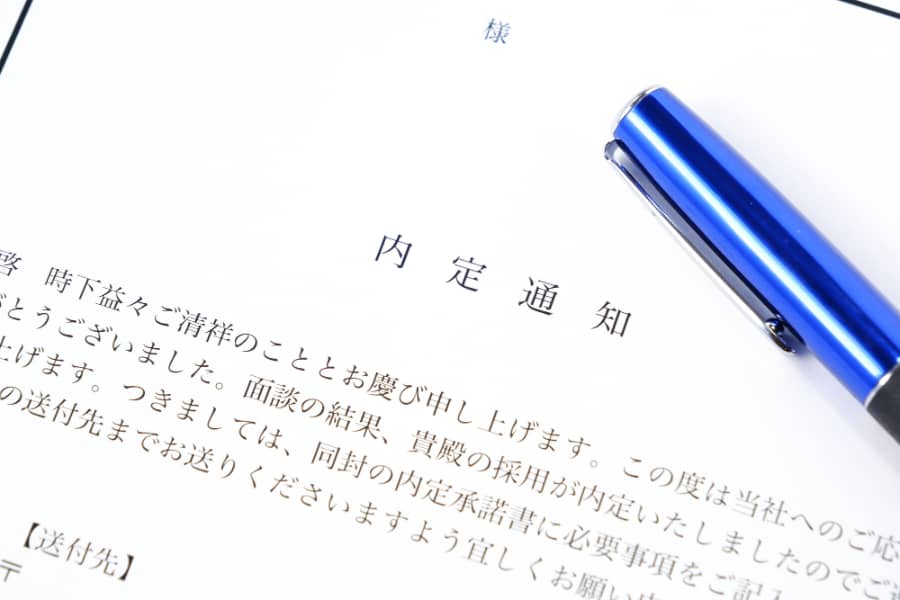 様
内定通知
啓 時下益々ご清祥のこととお慶び申し上げます。この度は当社へのご応
がとうございました。面談の結果、貴殿の採用が内定いたしましたのでご連
上げます。つきましては、同封の内定承諾書に必要事項をご記入
の送付先までお送りくださいますよう宜しくお願い
【送付先】
〒